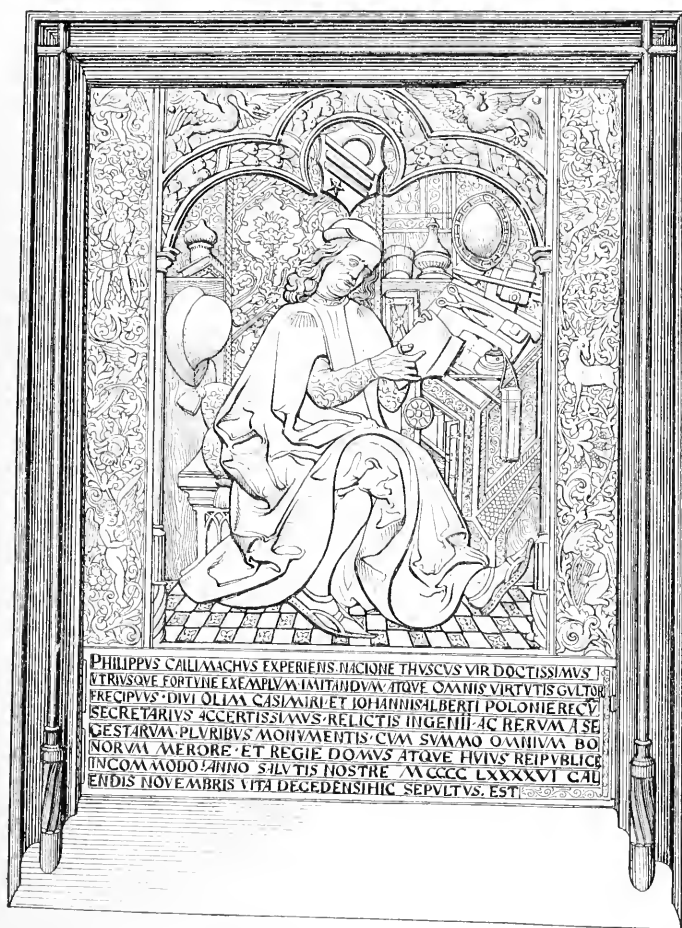 PHILIPPVS CALLIMACHVS EXPERIENS. NACIONE THVSCVS VIR DOCTISSIMVS
VTRIVSQVE FORTVNE EXEMPLVM IMITANDVM ATQVE OMNIS VIRTVTIS CVLTOR
PRECIPVVS · DIVI OLIM CASIMIRI · ET IOHANNIS ALBERTI POLONIE RECV
SECRETARIVS ACCERTISSIMVS · RELICTIS INGENII · AC RERVM A SE
GESTARVM · PLVRIBVS MONVMENTIS · CVM SVMMO OMNIVM BO
NORVM MERORE · ET REGIE DOMVS ATQVE HVIVS REIPVBLICE
INCOMMODO · ANNO SALVTIS NOSTRE MCCCC LXXXXVI CAL
ENDIS NOVEMBRIS VITA DECEDENS HIC SEPVLTVS. EST